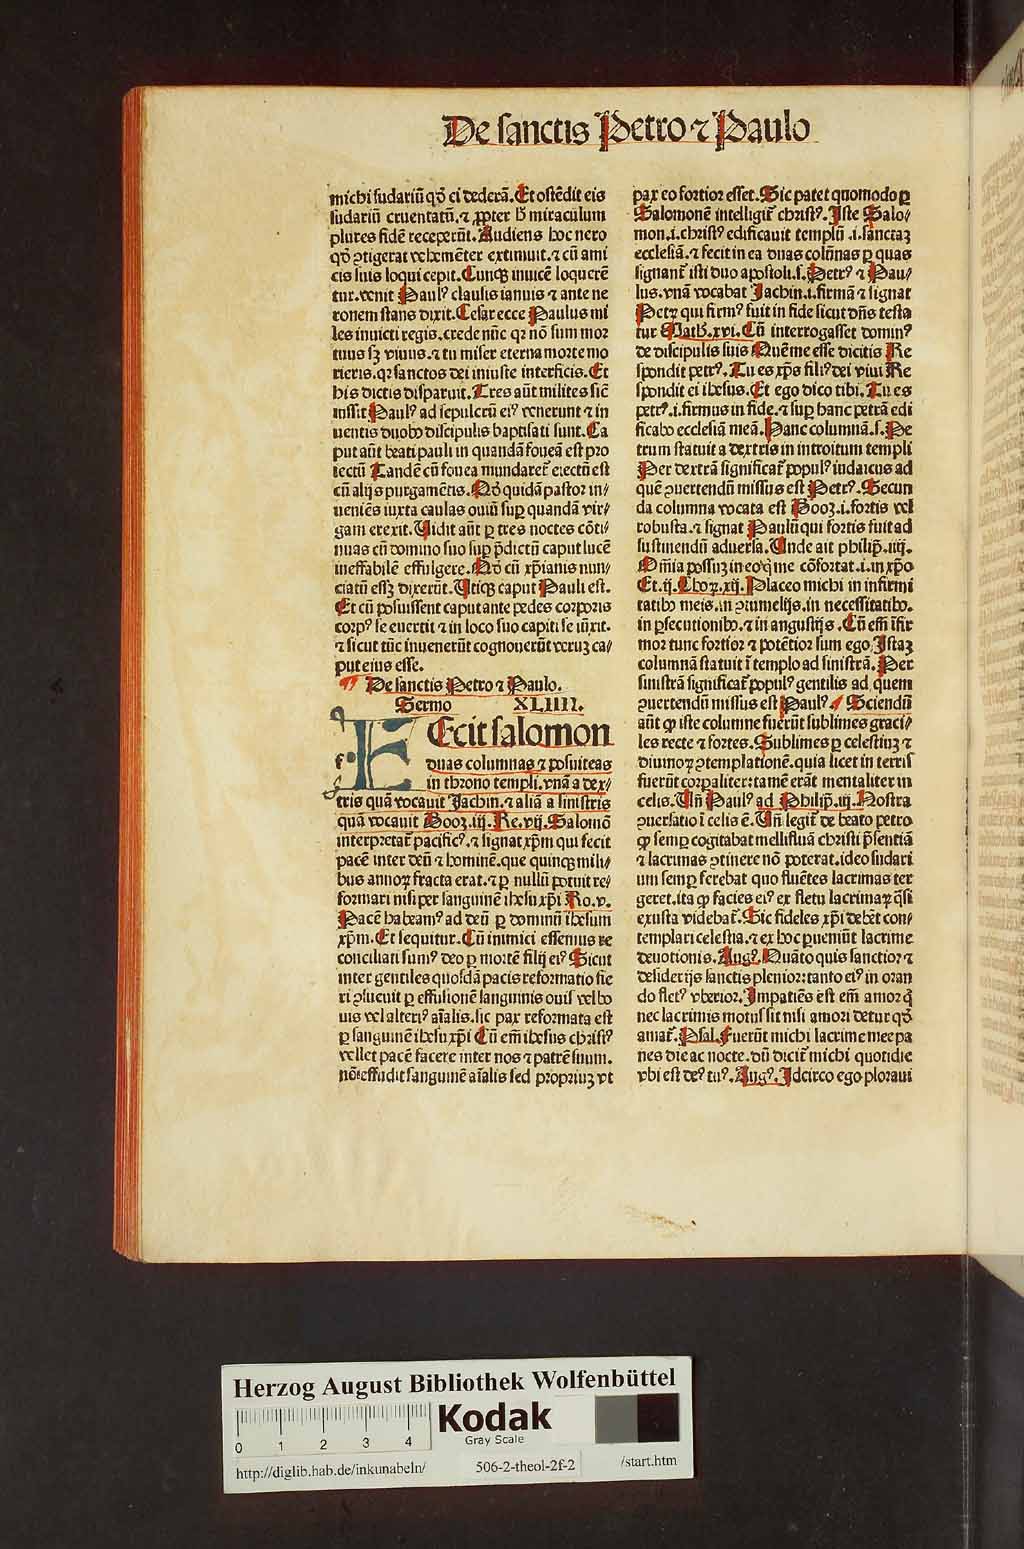 De sanctis Petro ⁊ Paulo
michi sudariū qḋ ei dederā. Et ostēdit eis
sudariū cruentatū. ⁊ ꝓpter ħ miraculum
plures fidē receperūt. Audiens hoc nero
qḋ ↄtigerat vehemēter extimuit. ⁊ cū ami
cis suis loqui cepit. Cunqꝫ invicē loquerē
tur. venit Paulꝰ clausis ianuis ⁊ ante ne
ronem stans dixit. Cesar ecce Paulus mi
les invicti regis. crede nūc qꝛ nō sum mor
tuus sꝫ vivus. ⁊ tu miser eterna morte mo
rieris. qꝛ sanctos dei iniuste interficis. Et
his dictis disparuit. Tres aūt milites sic̄
iussit Paulꝰ ad sepulcrū eiꝰ venerunt ⁊ in
uentis duobꝰ discipulis baptisati sunt. Ca
put aūt beati pauli in quandā foueā est pro
iectū Tandē cū fouea mundaret̄ eiectū est
cū alijs purgamētis. Nō quidā pastor in⸗
ueniēs iuxta caulas ouiū suꝑ quandā vir⸗
gam erexit. Uidit aūt ꝑ tres noctes cōti⸗
nuas cū domino suo suꝑ p̄dictū caput lucē
ineffabilē effulgere. Nō cū xp̄ianis nun⸗
ciatū essꝫ dixerūt. Utiqꝫ caput Pauli est.
Et cū posuissent caput ante pedes corporis
corpꝰ se evertit ⁊ in loco suo capiti se iūxit.
⁊ sicut tūc invenerūt cognouerūt veruꝫ ca⸗
put eius esse.
De sanctis Petro ⁊ Paulo.
Sermo XLIIII.
FEcit salomon
duas columnas ⁊ posuit eas
in throno templi. vnā a dex⸗
tris quā vocauit Jachin. ⁊ aliā a sinistris
quā vocauit Booꝫ. iij. Re. vij. Salomō
interpretat̄ pacificꝰ. ⁊ signat xp̄m qui fecit
pacē inter deū ⁊ hominē. que quinqꝫ mili⸗
bus annoꝝ fracta erat. ⁊ ꝑ nullū potuit re⸗
formari nisi per sanguinē ihesu xp̄i Ro. v.
Pacē habeamꝰ ad deū ꝑ dominū ihesum
xp̄m. Et sequitur. Cū inimici essemus re
conciliati sumꝰ deo ꝑ mortē filij eiꝰ Sicut
inter gentiles quosdā pacis reformatio fie
ri ↄsueuit ꝑ effusionē sanguinis ouis vel bo
uis vel alteriꝰ aīalis. sic pax reformata est
ꝑ sanguinē ihesu xp̄i Cū em̄ ihesus christꝰ
vellet pacē facere inter nos ⁊ patrē suum.
nō effudit sanguinē aīalis sed propriuꝫ vt
pax eo fortior esset. Sic patet quomodo ꝑ
Salomonē intelligit̄ christꝰ. Iste Salo⸗
mon. i. christꝰ edificauit templū .i. sanctaꝫ
ecclesiā. ⁊ fecit in ea duas colūnas ꝑ quas
signant̄ isti duo apostoli. s. Petrꝰ ⁊ Pau⸗
lus. vnā vocabat Jachin. i. firmā ⁊ signat
Petꝝ qui firmꝰ fuit in fide sicut dn̄s testa
tur Math. xvi. Cū interrogasset dominꝰ
de discipulis suis Quē me esse dicitis Re
spondit petrꝰ. Tu es xp̄s filiꝰ dei viui Re
spondit ei ihesus. Et ego dico tibi. Tu es
petrꝰ. i. firmus in fide. ⁊ suꝑ hanc petrā edi
ficabo ecclesiā meā. Hanc columnā. s. Pe
trum statuit a dextris in introitum templi
Per dextrā significat̄ populꝰ iudaicus ad
quē ↄuertendū missus est Petrꝰ. Secun
da columna vocata est Booꝫ. i. fortis vel
robusta. ⁊ signat Paulū qui fortis fuit ad
sustinendū aduersa. Unde ait philip̄. iiij.
Om̄ia possuꝫ in eo qui me cōfortat. i. in xp̄o
Et. ij. Choꝝ. xij. Placeo michi in infirmi
tatibꝰ meis. in ↄtumelijs. in necessitatibꝰ.
in ꝑsecutionibꝰ. ⁊ in angustijs. Cū em̄ īfir
mor tunc fortior ⁊ potētior sum ego. Istaꝫ
columnā statuit ī templo ad sinistrā. Per
sinistrā significat̄ populꝰ gentilis ad quem
ↄuertendū missus est Paulꝰ Sciendū
aūt ꝙ iste columne fuerūt sublimes graci⸗
les recte ⁊ fortes. Sublimes ꝑ celestiuꝫ ⁊
diuinoꝝ ↄtemplationē. quia licet in terris
fuerūt corꝑaliter: tamē erāt mentaliter in
celis. Un̄ Paulꝰ ad Philip̄. iij. Nostra
ↄuersatio ī celis ē. Un̄ legit̄ de beato petro
ꝙ semꝑ cogitabat mellifluā christi p̄sentiā
⁊ lacrimas ↄtinere nō poterat. ideo sudari
um semꝑ ferebat quo fluētes lacrimas ter
geret. ita ꝙ facies eiꝰ ex fletu lacrimaꝝ q̄si
exusta videbat̄. Sic fideles xp̄i debēt con⸗
templari celestia. ⁊ ex hoc ꝓueniūt lacrime
deuotionis. Augꝰ. Quāto quis sanctior ⁊
desiderijs sanctis plenior: tanto eiꝰ in oran
do fletꝰ vberior. Impatiēs est em̄ amor q̇
nec lacrimis motus sit nisi amori detur qḋ
amat̄. Psal. Fuerūt michi lacrime mee pa
nes die ac nocte. dū dicit̄ michi quotidie
vbi est deꝰ tuꝰ. Augꝰ. Idcirco ego ploraui
Herzog August Bibliothek Wolfenbüttel
0 1 2 3 4
Kodak
Gray Scale
http://diglib.hab.de/inkunabeln/ 506-2-theol-2f-2 /start.htm